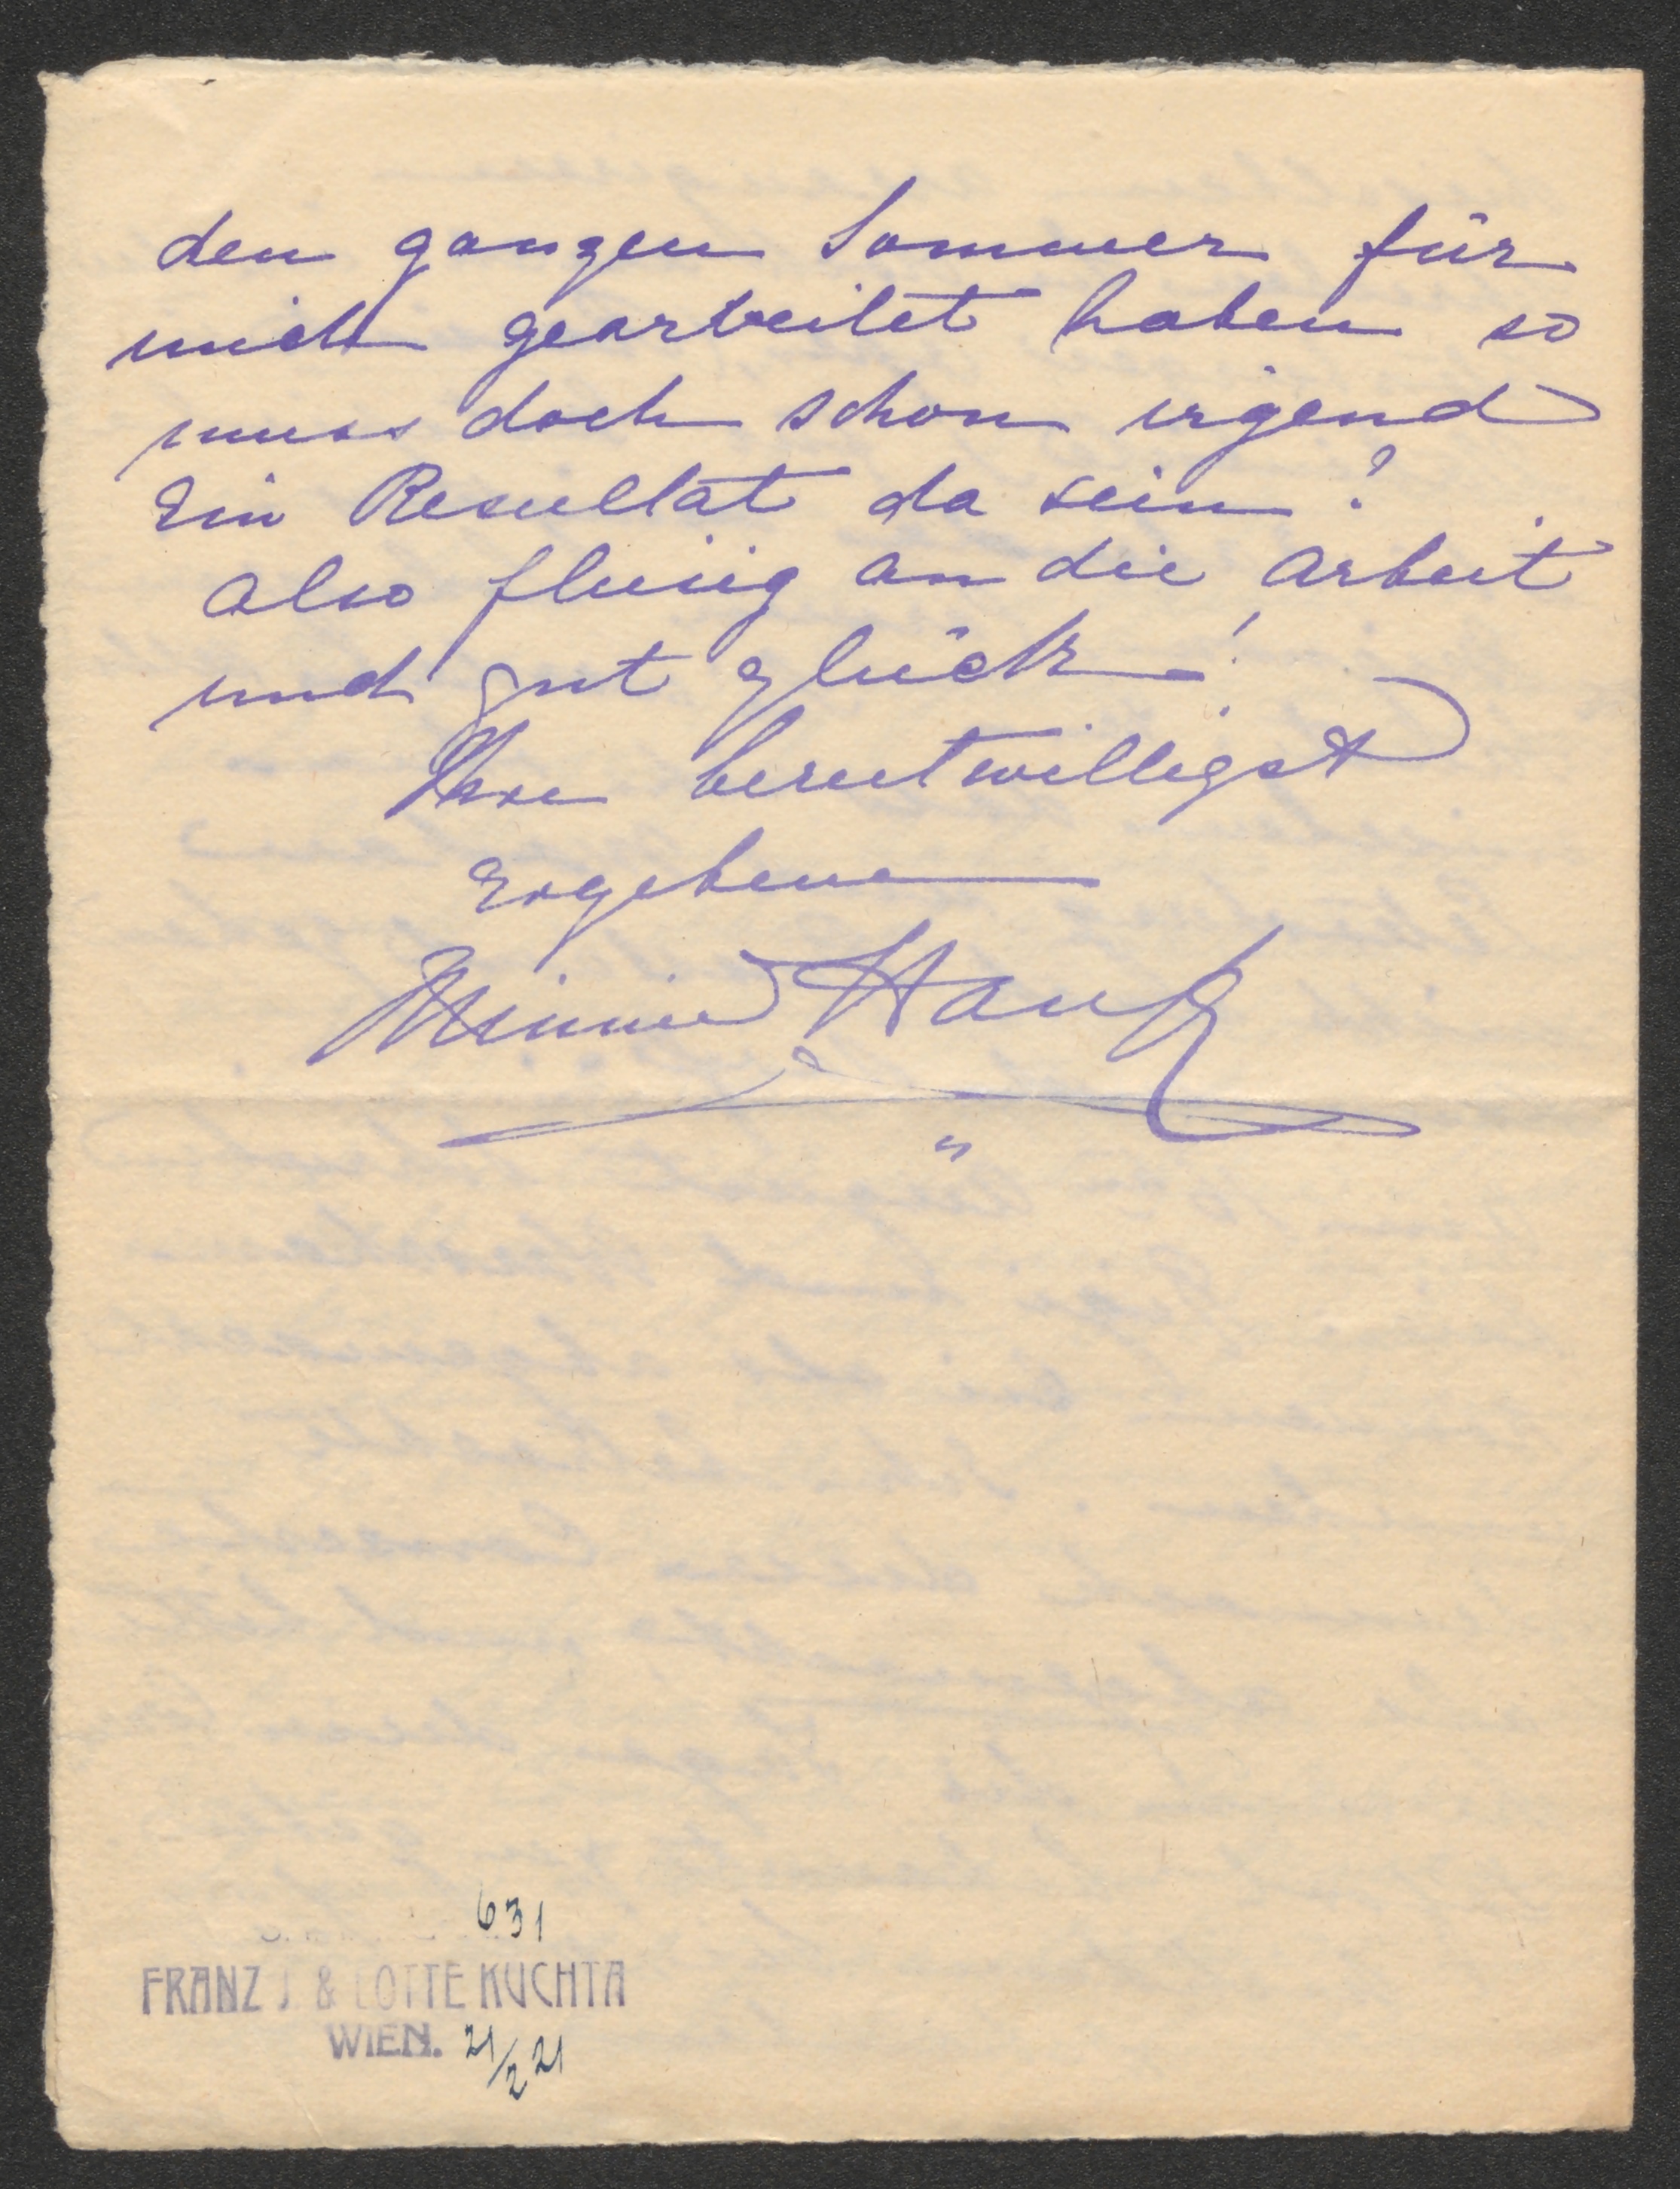 den ganzen Sommer für
mich gearbeitet haben so
muss doch schon irgend
Ein Resultat da sein?
Also fleisig an die Arbeit
und gut glück!
Ihre bereitwilligst
Ergebene
Minnie Hauk
631
FRANZ J. & LOTTE KUCHTA
WIEN. 21/2 21